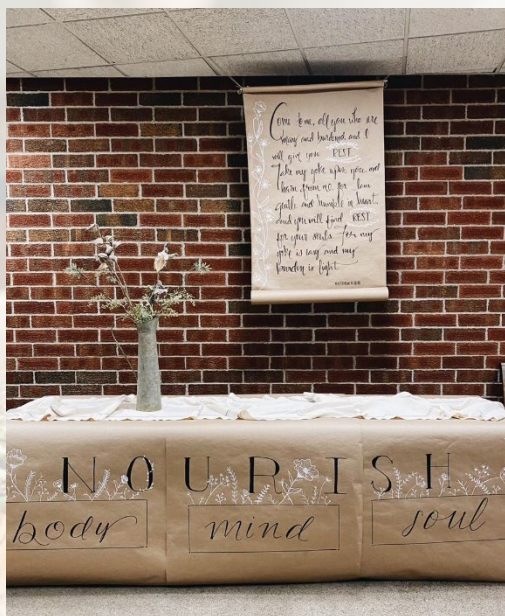 Come to me, all you who are
weary and burdened and I
will give you REST
Take my yoke upon you and
learn from me for I am
gentle and humble in heart.
and you will find REST
for your souls. for my
yoke is easy and my
burden is light
NOURISH
body mind soul